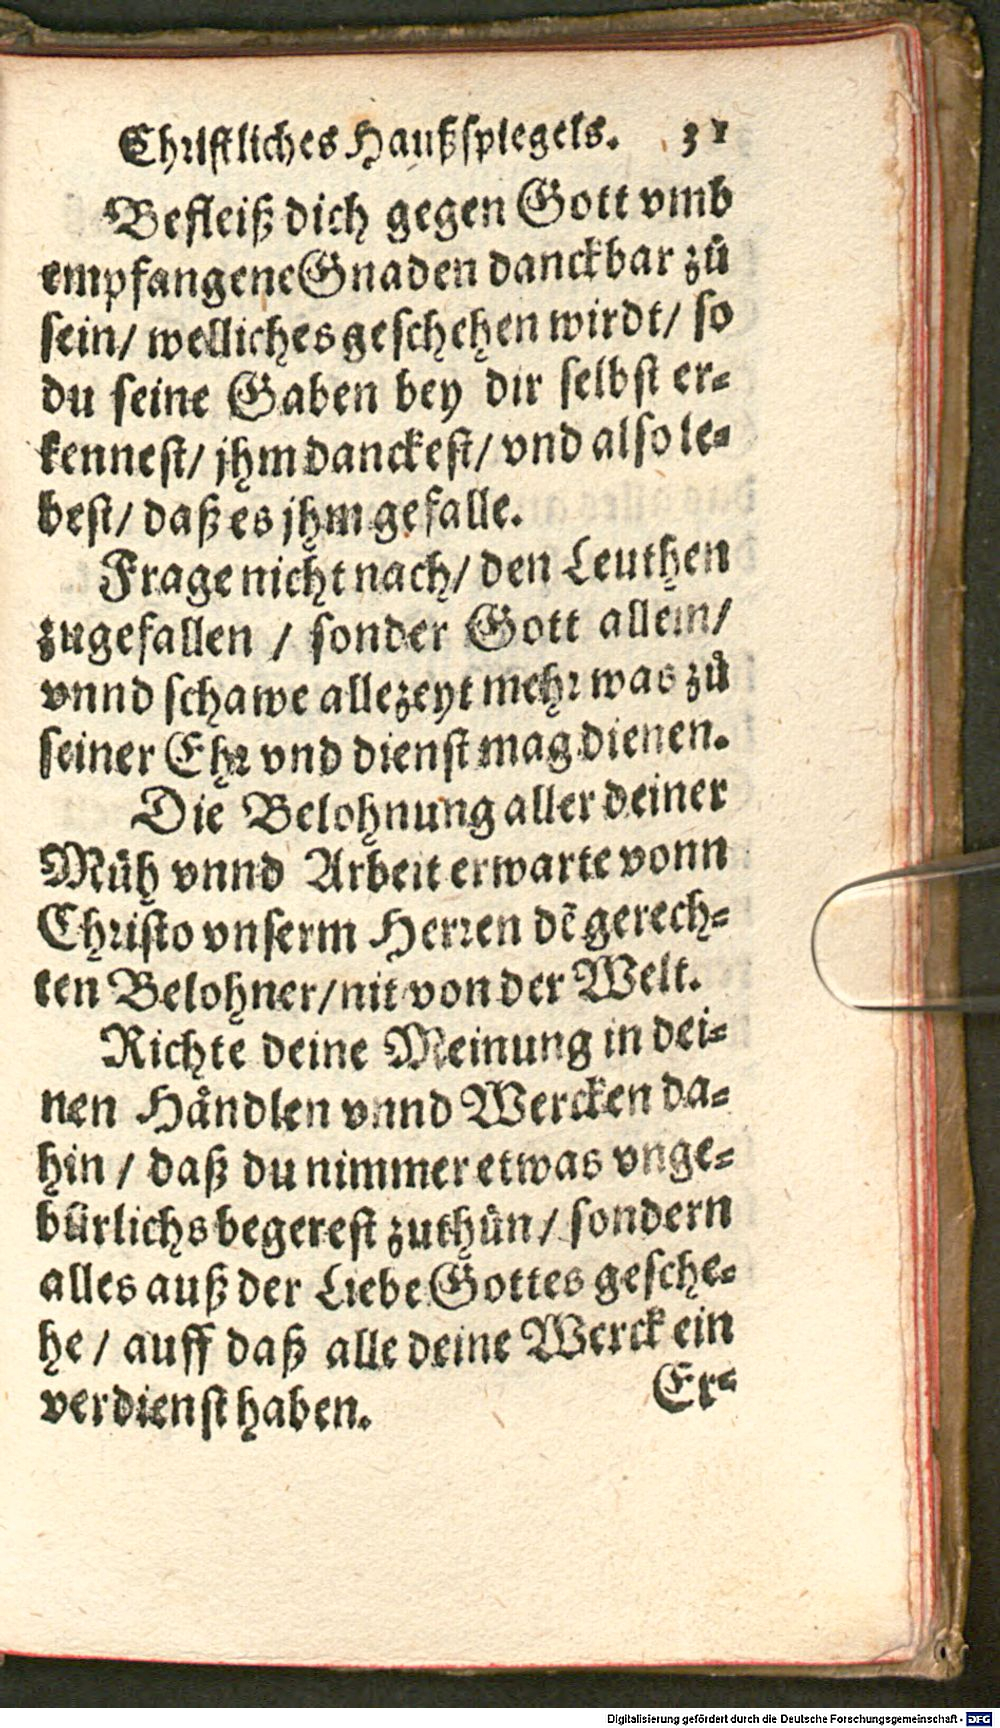 Christliches Haußspiegels. 31
Befleiß dich gegen Gott vmb
empfangene Gnaden danckbar zů
sein/ welliches geschehen wirdt/ so
du seine Gaben bey dir selbst er-
kennest/ jhm danckest/ vnd also le-
best/ daß es jhm gefalle.
Frage nicht nach/ den Leuthen
zugefallen / sonder Gott allein/
vnnd schawe allezeyt mehr was zů
seiner Ehr vnd dienst mag dienen.
Die Belohnung aller deiner
Müh vnnd Arbeit erwarte vonn
Christo vnserm Herren dẽ gerech-
ten Belohner/ nit von der Welt.
Richte deine Meinung in dei-
nen Håndlen vnnd Wercken da-
hin / daß du nimmer etwas vnge-
bürlichs begerest zuthůn/ sondern
alles auß der Liebe Gottes gesche-
he / auff daß alle deine Werck ein
verdienst haben.
Er-
Digitalisierung gefördert durch die Deutsche Forschungsgemeinschaft - DFG